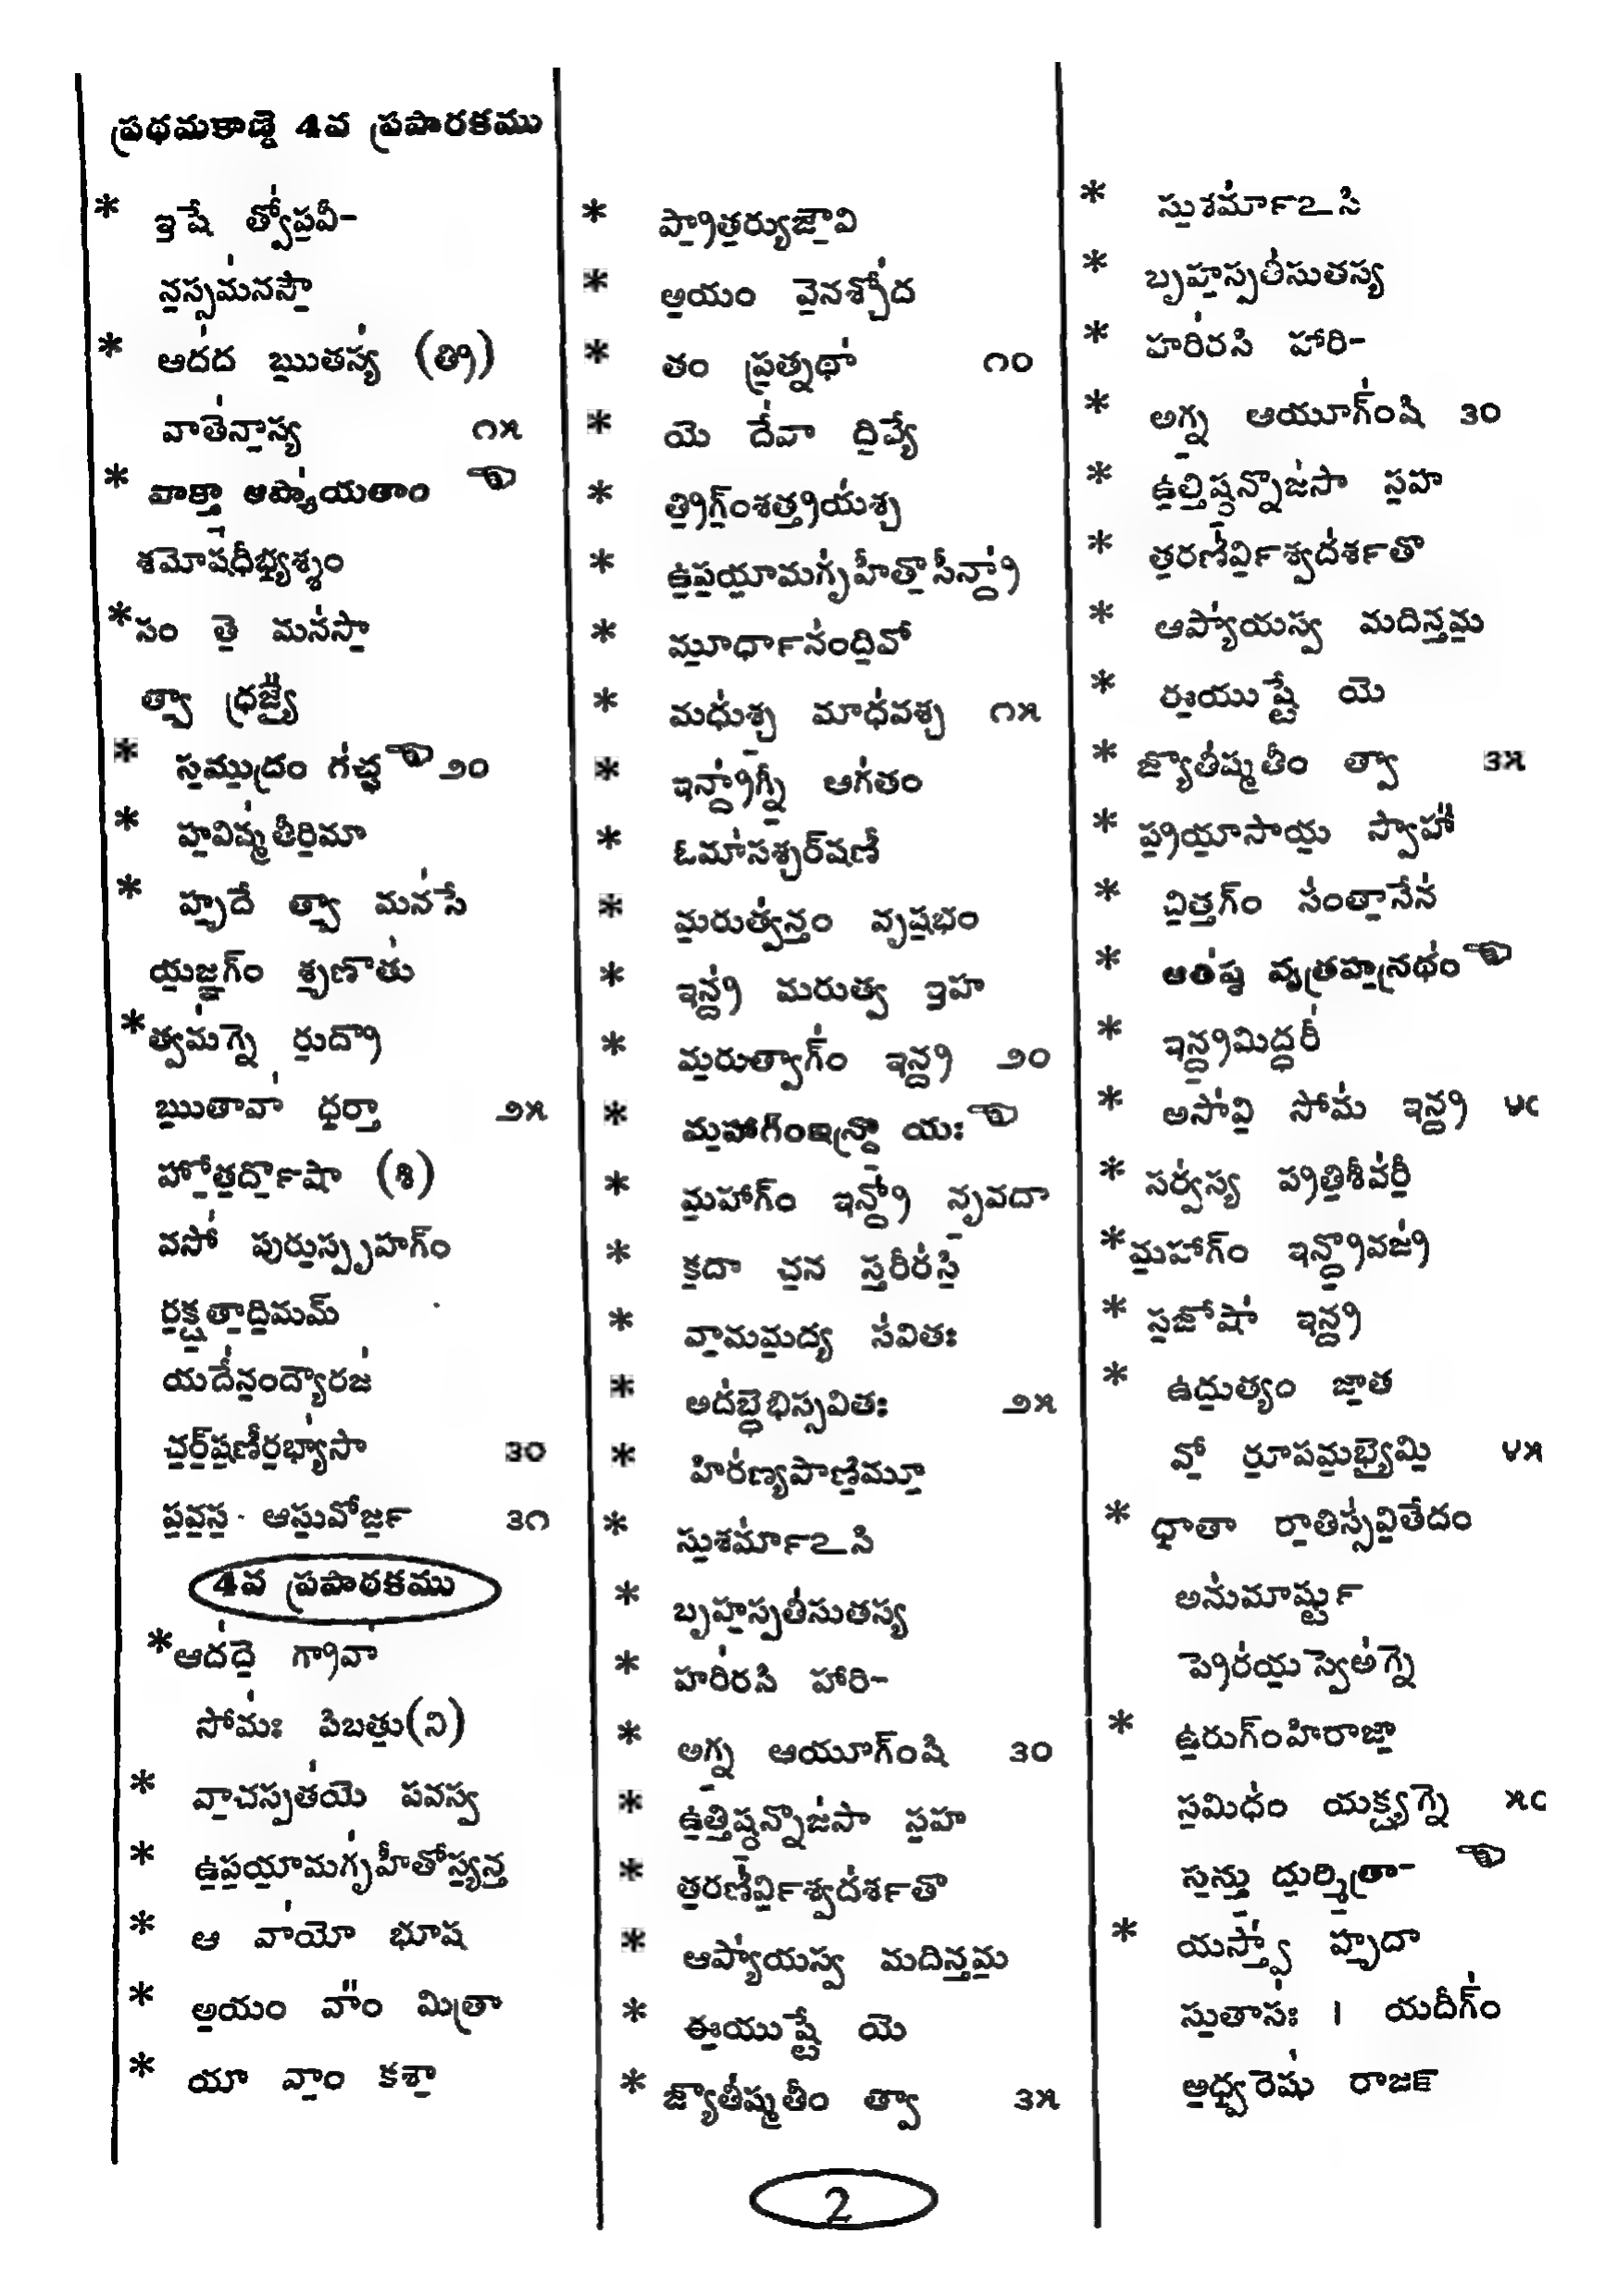 ప్రథమకాణ్డె 4వ ప్రపారకము
* ఇషే త్వోపవీ-
నస్సమనసౌ
* ఆదద ఋతస్య (త్రి)
వాతేనాస్య ౧౫
* వాక్తా ఆప్యాయతాం
శమోషధీభ్యశ్శం
* సం తె మనసా
త్వా ధ్రజ్యై
* సముద్రం గచ్ఛ ౨౦
* హవిష్మతీరిమా
* హృదే త్వా మనసే
యజ్ఞగ్ం శృణోతు
* త్వమగ్నె రుద్రొ
ఋతావా ధర్తా ౨౫
హోతర్దోషా (శి)
వసో పురుస్పృహగ్ం
రక్షతాదిమమ్
యదేనంద్యౌరజ
చర్‌షణీరభ్యాసా ౩౦
పవస ఆసువోర్జ ౩౧
4వ ప్రపాఠకము
* ఆదదె గ్రావా
సోమః పిబతు(ని)
* వాచస్పతయె పవస్వ
* ఉపయామగృహీతోస్యన్త
* ఆ వాయో భూష
* అయం వాం మిత్రా
* యా వాం కశా
* ప్రాతర్యుజౌవి
* అయం వెనశ్చోద
* తం ప్రత్నథా ౧౦
* యె దేవా దివ్యే
* త్రిగ్ంశత్త్రయశ్చ
* ఉపయామగృహీతొసీన్ద్రా
* మూర్ధానందివో
* మధుశ్చ మాధవశ్చ ౧౫
* ఇన్ద్రాగ్నీ ఆగతం
* ఓమాసశ్చర్‌షణీ
* మరుత్వన్తం వృషభం
* ఇన్ద్ర మరుత్వ ఇహ
* మరుత్వాగ్ం ఇన్ద్ర ౨౦
* మహాగ్ంఇన్ద్రొ యః
* మహాగ్ం ఇన్ద్రో నృవదా
* కదా చన స్తరీరసి
* వామమద్య సవితః
* అదబ్ధెభిస్సవితః ౨౫
* హిరణ్యపాణిమూ
* సుశర్మాఽసి
* బృహస్పతిసుతస్య
* హరిరసి హారి-
* అగ్న ఆయూగ్ంషి ౩౦
* ఉత్తిష్ఠన్నొజసా సహ
* తరణిర్విశ్వదర్శతొ
* ఆప్యాయస్వ మదిన్తమ
* ఈయుష్టే యె
* జ్యొతిష్మతీం త్వా ౩౫
* సుశర్మాఽసి
* బృహస్పతిసుతస్య
* హరిరసి హారి-
* అగ్న ఆయూగ్ంషి ౩౦
* ఉత్తిష్ఠన్నొజసా సహ
* తరణిర్విశ్వదర్శతొ
* ఆప్యాయస్వ మదిన్తమ
* ఈయుష్టే యె
* జ్యొతిష్మతీం త్వా ౩౫
* ప్రయాసాయ స్వాహా
* చిత్తగ్ం సంతానేన
* ఆతిష్ఠ వృత్రహన్రథం
* ఇన్ద్రమిద్ధరీ
* అసావి సోమ ఇన్ద్ర ౪౦
* సర్వస్య ప్రతిశీవరీ
* మహాగ్ం ఇన్ద్రొవజ్ర
* సజోషా ఇన్ద్ర
* ఉదుత్యం జాత
వో రూపమభ్యైమి ౪౫
* ధాతా రాతిస్సవితేదం
అనుమార్ష్టు
ప్రెరయస్వెఅగ్నె
* ఉరుగ్ంహిరాజా
సమిధం యక్ష్యగ్నె ౫౦
సన్తు దుర్మిత్రా-
* యస్త్వా హృదా
సుతాసః । యదీగ్ం
అధ్వరెషు రాజ
2